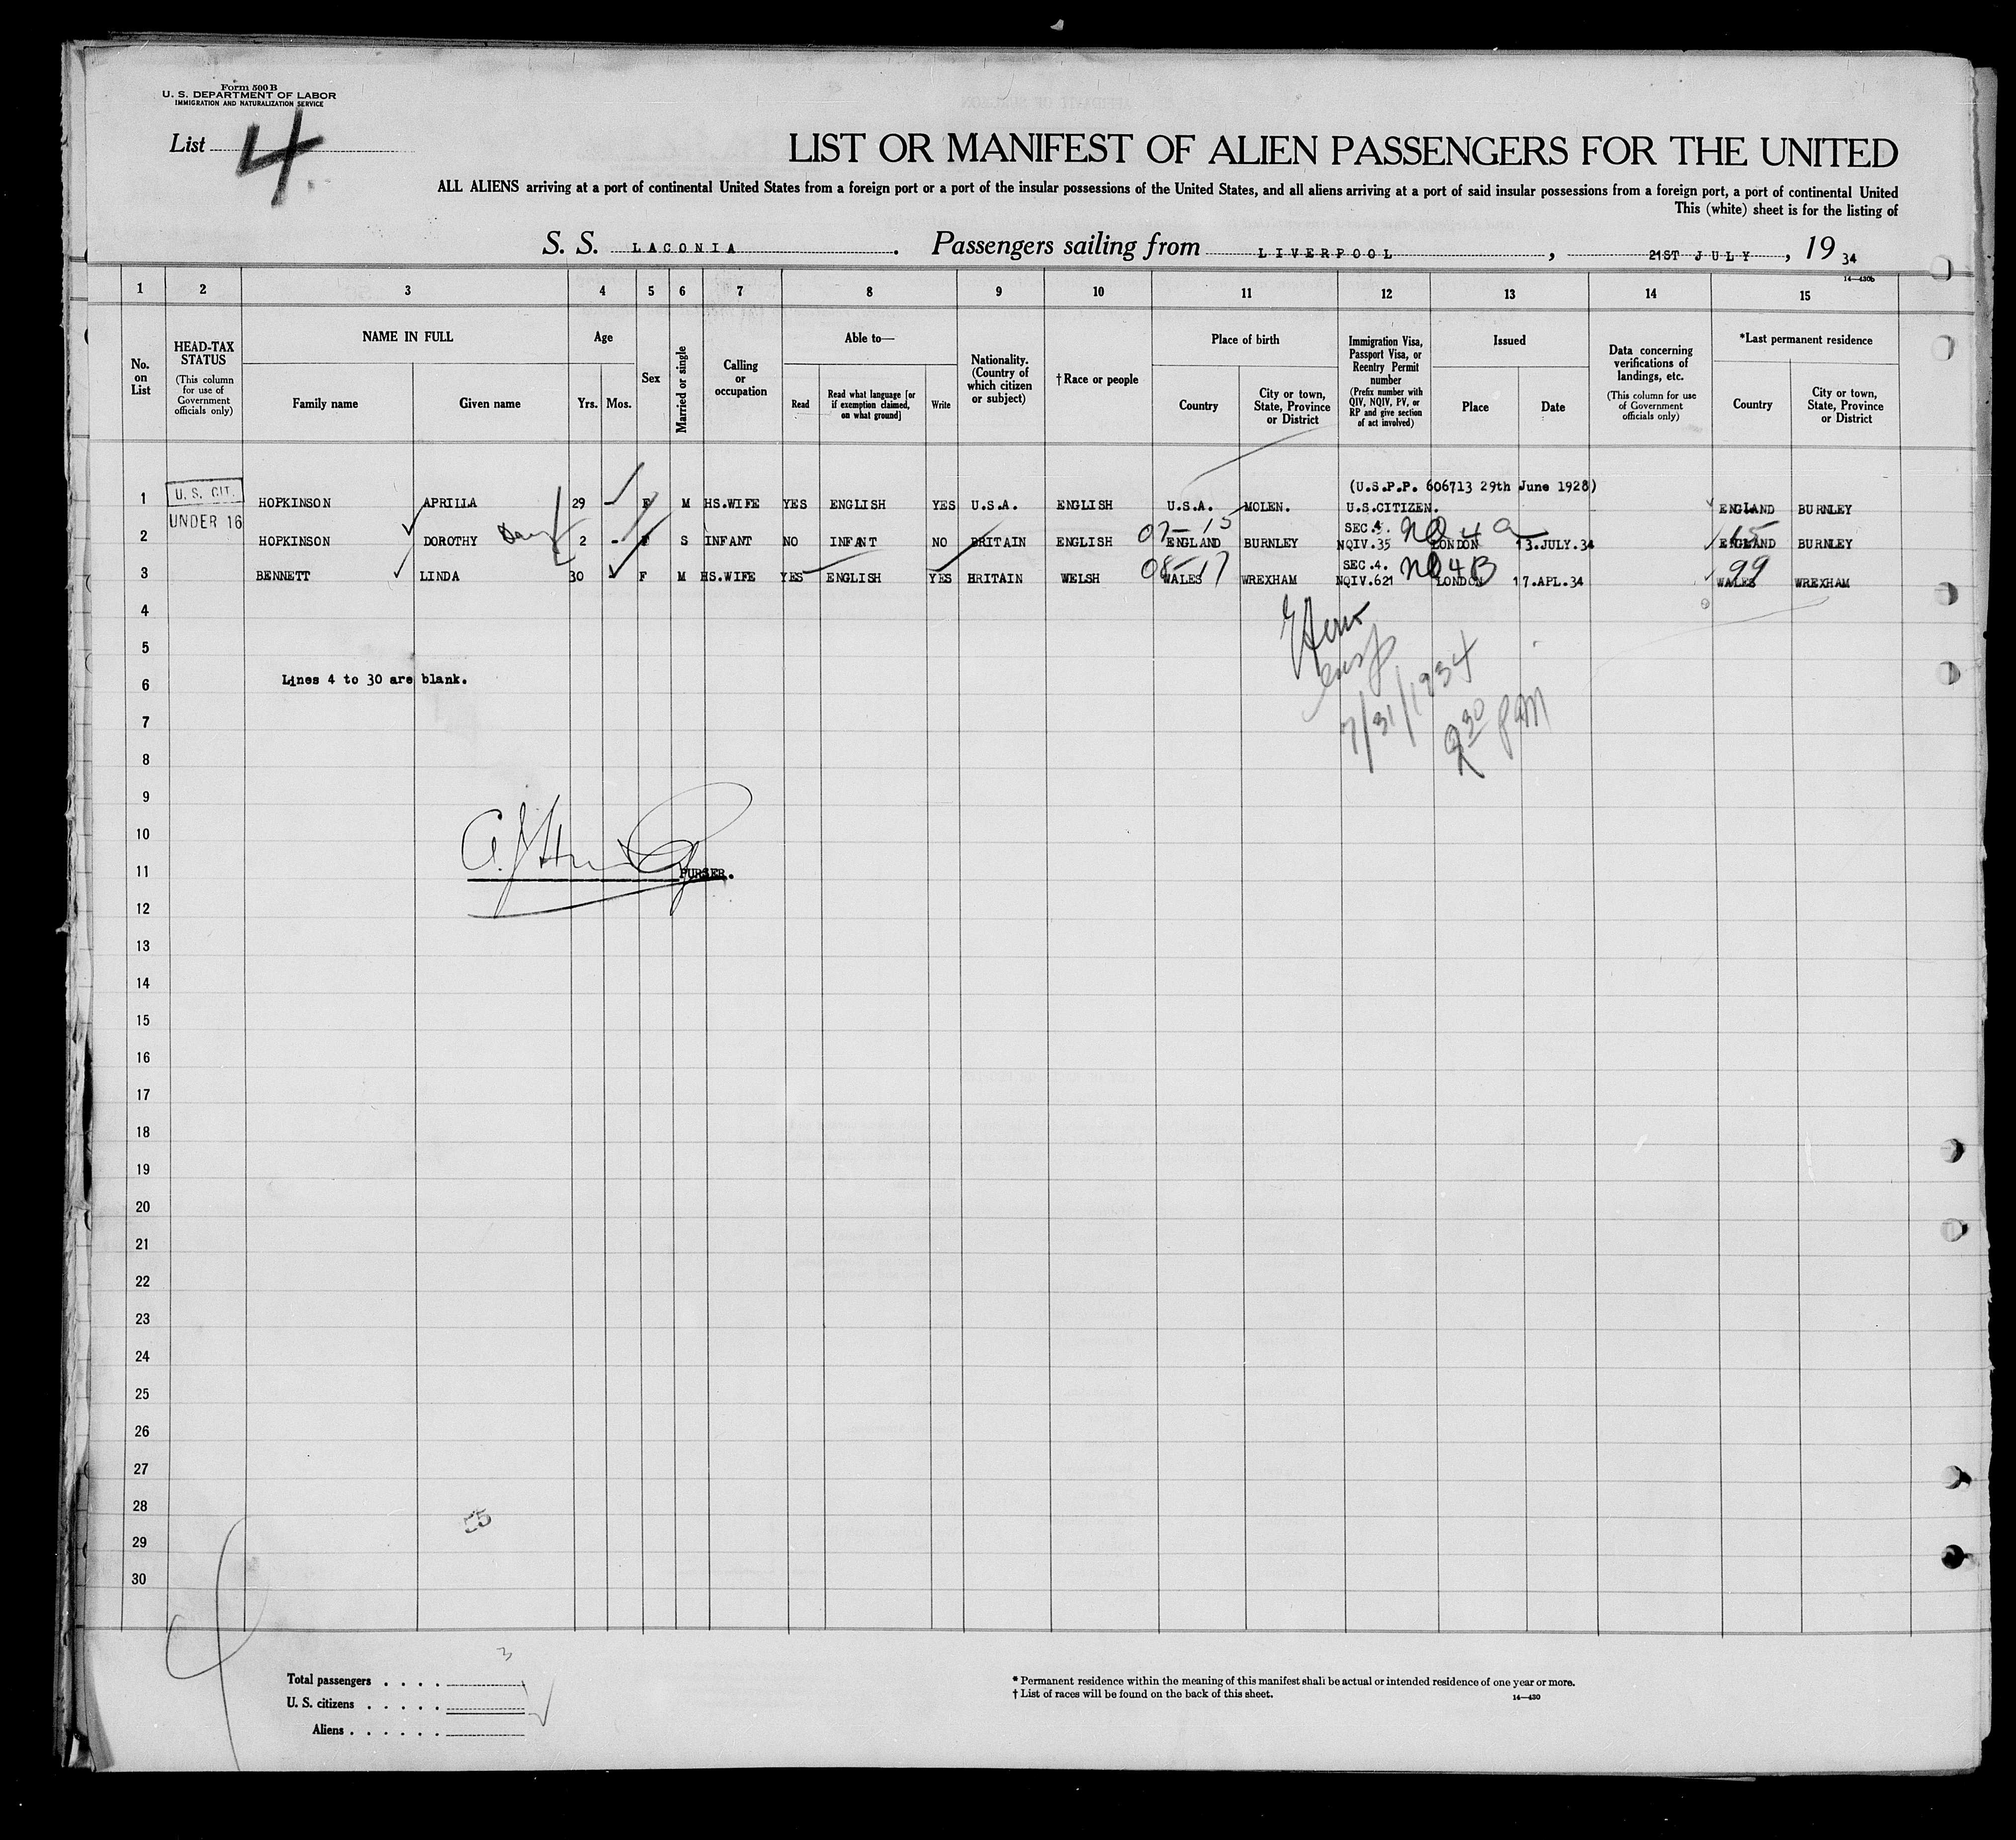 Form 500 B
U. S. DEPARTMENT OF LABOR
IMMIGRATION AND NATURALIZATION SERVICE
List 4
LIST OR MANIFEST OF ALIEN PASSENGERS FOR THE UNITED
ALL ALIENS arriving at a port of continental United States from a foreign port or a port of the insular possessions of the United States, and all aliens arriving at a port of said insular possessions from a foreign port, a port of continental United
This (white) sheet is for the listing of
S. S. LACONIA. Passengers sailing from LIVERPOOL, 21ST JULY, 19 34
14—430b
1 2 3 4 5 6 7 8 9 10 11 12 13 14 15
No. on List
HEAD-TAX STATUS
(This column for use of Government officials only)
NAME IN FULL
Family name
Given name
Age
Yrs. Mos.
Sex
Married or single
Calling or occupation
Able to—
Read
Read what language [or if exemption claimed, on what ground]
Write
Nationality. (Country of which citizen or subject)
† Race or people
Place of birth
Country
City or town, State, Province or District
Immigration Visa, Passport Visa, or Reentry Permit number
(Prefix number with QIV, NQIV, PV, or RP and give section of act involved)
Issued
Place
Date
Data concerning verifications of landings, etc.
(This column for use of Government officials only)
*Last permanent residence
Country
City or town, State, Province or District
(U.S.P.P. 606713 29th June 1928)
1 U. S. CIT. HOPKINSON APRILLA 29 - F M HS.WIFE YES ENGLISH YES U.S.A. ENGLISH U.S.A. MOLEN. U.S.CITIZEN. ENGLAND BURNLEY
UNDER 16
07-15 SEC.4. NQ 4 a 15
2 HOPKINSON DOROTHY 2 - F S INFANT NO INFANT NO BRITAIN ENGLISH ENGLAND BURNLEY NQIV.35 LONDON 13.JULY.34 ENGLAND BURNLEY
08-17 SEC.4. NQ4B 99
3 BENNETT LINDA 30 F M HS.WIFE YES ENGLISH YES BRITAIN WELSH WALES WREXHAM NQIV.621 LONDON 17.APL.34 WALES WREXHAM
4
5
6 Lines 4 to 30 are blank.
7/31/1934
7
2 30 PM
8
9
10
11 PURSER.
12
13
14
15
16
17
18
19
20
21
22
23
24
25
26
27
28
29
30
3
Total passengers
U. S. citizens
Aliens
* Permanent residence within the meaning of this manifest shall be actual or intended residence of one year or more.
† List of races will be found on the back of this sheet.
14—430